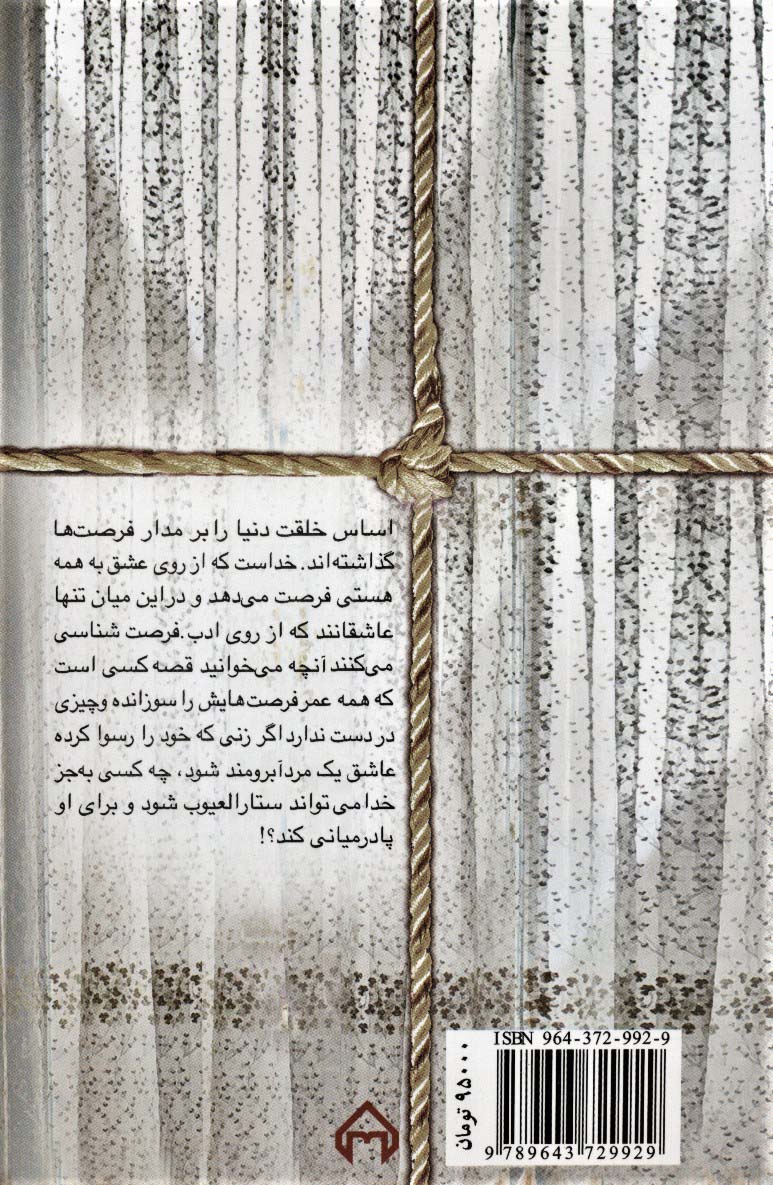 اساس خلقت دنیا را بر مدار فرصت‌ها
گذاشته‌اند. خداست که از روی عشق به همه
هستی فرصت می‌دهد و در این میان تنها
عاشقانند که از روی ادب.فرصت شناسی
می‌کنند آنچه می‌خوانید قصه کسی است
که همه عمر فرصت‌هایش را سوزانده و چیزی
در دست ندارد اگر زنی که خود را رسوا کرده
عاشق یک مرد آبرومند شود، چه کسی به‌جز
خدا می‌تواند ستارالعیوب شود و برای او
پادرمیانی کند؟!
ISBN 964-372-992-9
9 789643 729929
۹۵۰۰۰ تومان